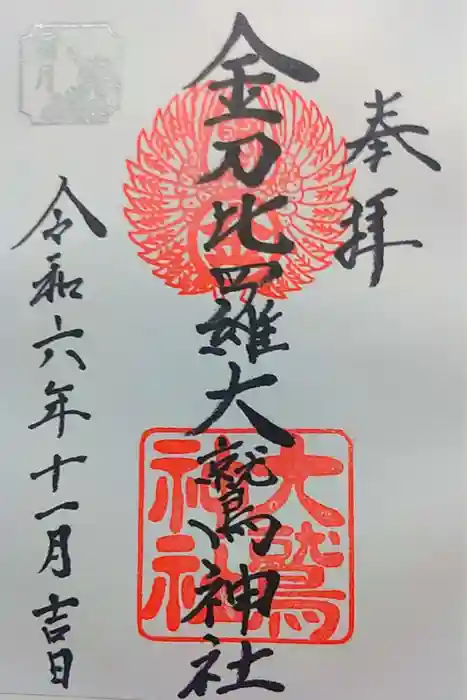 奉拝
金刀比羅大鷲神社
令和六年十一月吉日
大鷲
神社
金